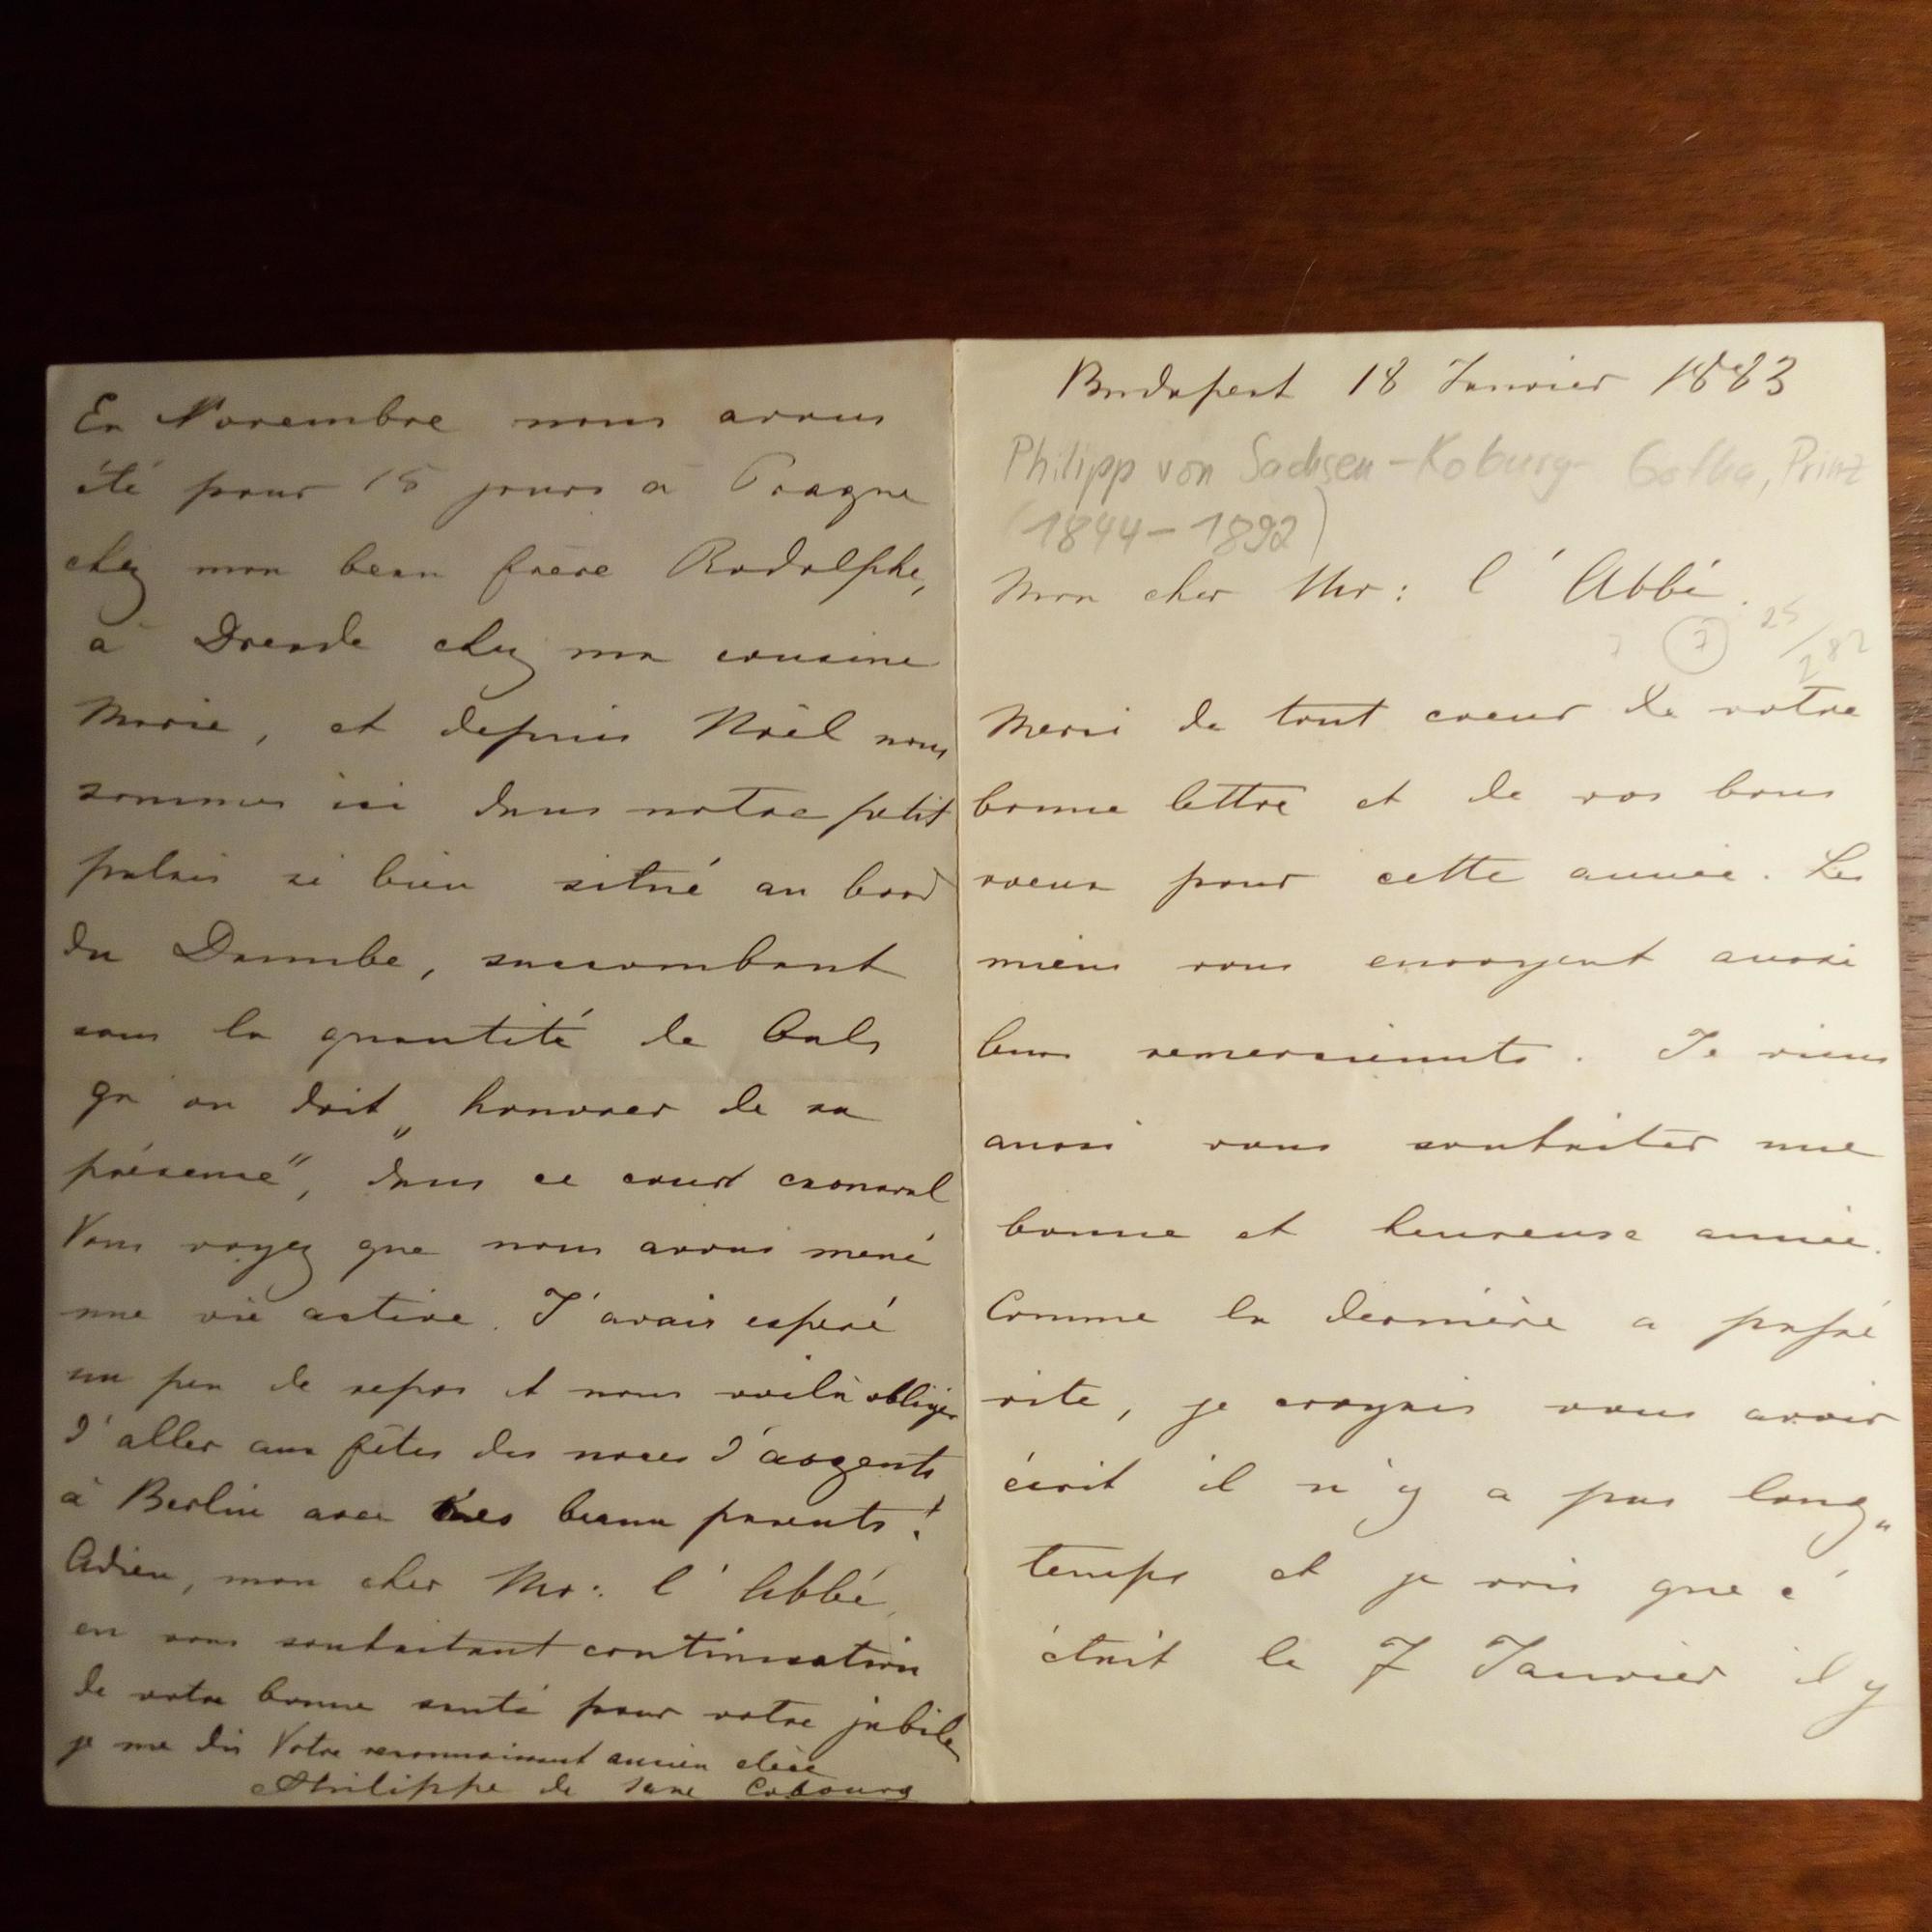 Budapest 18 Janvier 1883
Philipp von Sachsen-Koburg-Gotha, Prinz
(1844-1892)
Mon cher Mr: l'Abbé.
7 25
Merci de tout coeur de votre
bonne lettre et de vos bons
voeux pour cette année. Les
miens vous envoyent aussi
leurs remerciments. Je viens
aussi vous souhaiter une
bonne et heureuse année.
Comme la dernière a passé
vite, je croyais vous avoir
écrit il n'y a pas long„
temps et je vois que c'
était le 7 Janvier il y
En Novembre nous avons
été pour 15 jours à Prague
chez mon beau frère Rodolphe,
à Dresde chez ma cousine
Marie, et depuis Noël nous
sommes ici dans notre petit
palais si bien situé au bord
du Danube, succombant
sous la quantité de bals
qu'on doit „honorer de sa
présence", dans ce court carnaval
Vous voyez que nous avons mené
une vie active. J'avais esperé
un peu de repos et nous voilà obligés
d'aller aux fêtes des noces d'argents
à Berlin avec mes beaux parents!
Adieu, mon cher Mr: l'Abbé,
en vous souhaitant continuation
de votre bonne santé pour votre jubilé
je me dis Votre reconnaissant ancien élève
Philippe de Saxe Cobourg